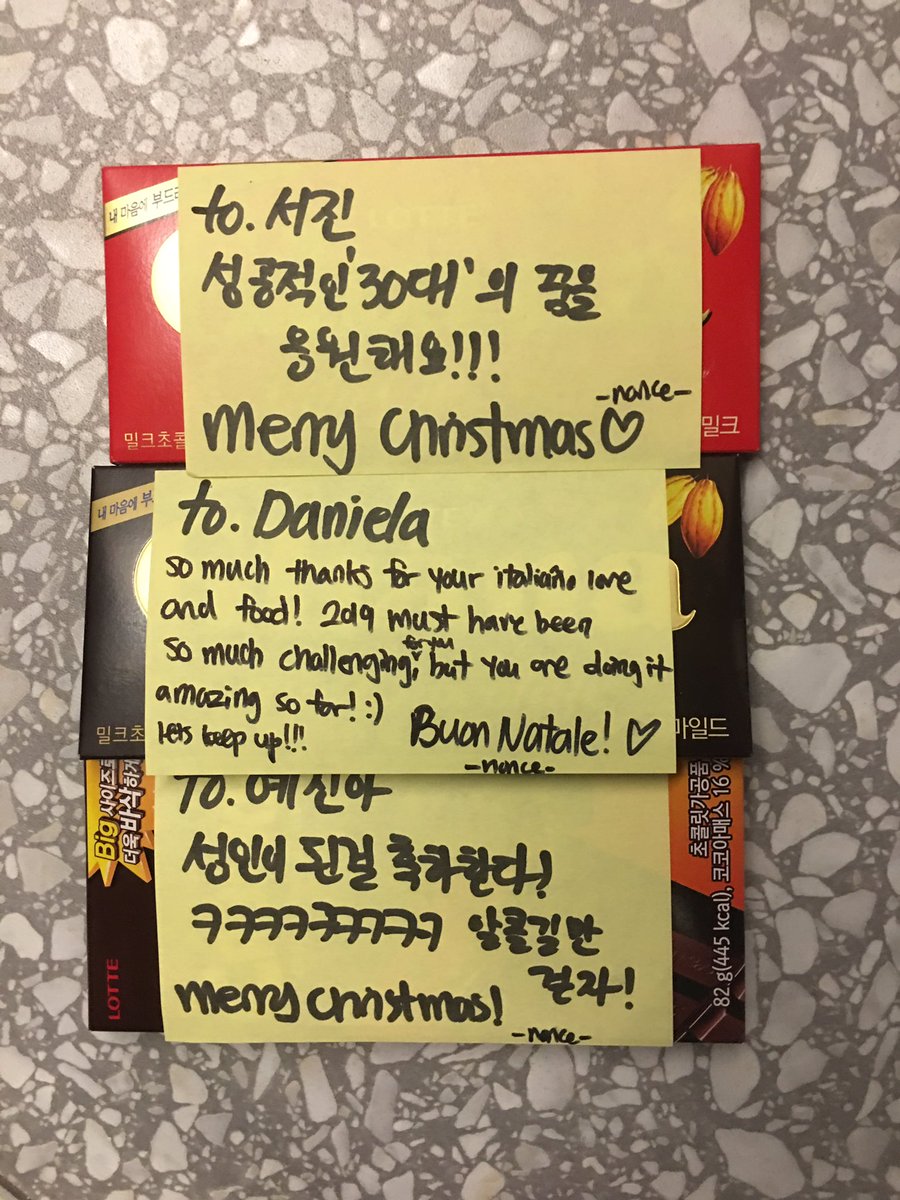 내 마음에 부드
to. 서진
성공적인 '30대'의 꿈을
응원해요!!!
-nance-
merry christmas♡
밀크초콜
밀크
내 마음에 부
to. Daniela
so much thanks for your italiano love
and food! 2019 must have been
for you
so much challenging, but you are doing it
amazing so far! :)
lets keep up!!!
Buon Natale! ♡
-nance-
밀크초
마일드
Big 사이즈로
더욱 바삭하게
To. 예진아
성인이 된걸 축하한다!
ㅋㅋㅋㅋㅋㅋㅋㅋ 알콜길만
걷자!
merry christmas!
-nance-
LOTTE
초콜릿가공품
82 g(445 kcal), 코코아매스 16 %